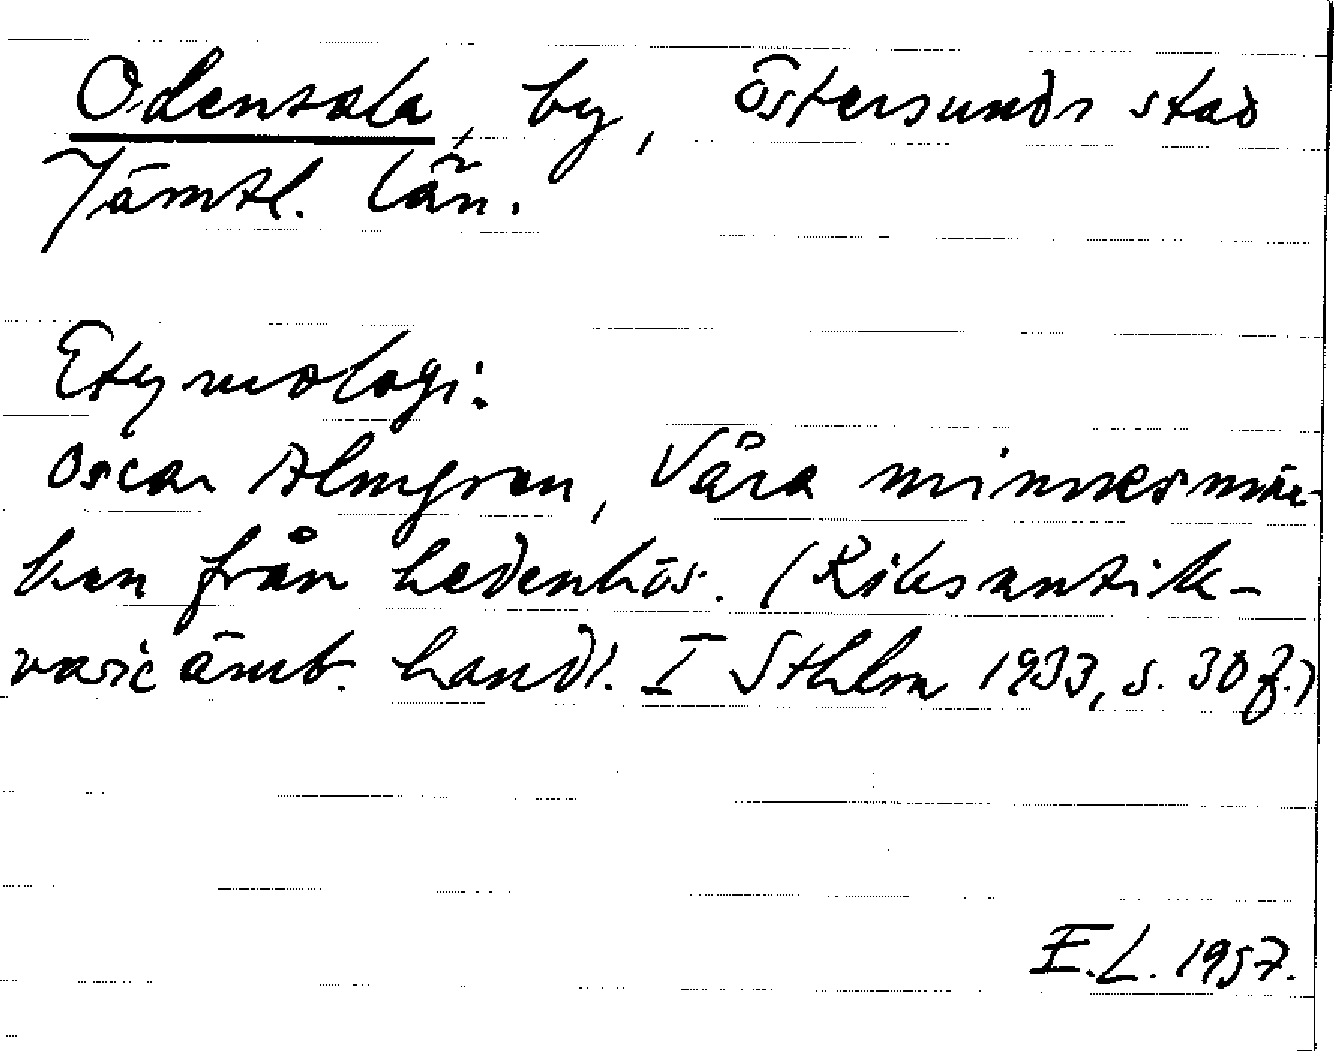 Odensala, by, Östersunds stad
Jämtl. län.
Etymologi:
Oscar Almgren, Våra minnesmär-
ken från hedenhös. (Riksantik-
varieämb. handl. I Sthlm 1933, s. 30 f.)
E.L. 1957.